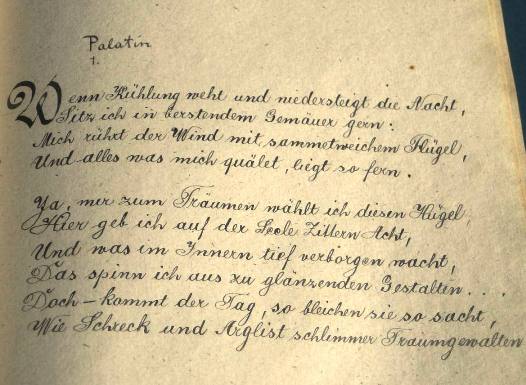 Palatin
1.
Wenn Kühlung weht und niedersteigt die Nacht,
Sitz ich in berstendem Gemäuer gern.
Mich rührt der Wind mit sammetweichem Flügel,
Und alles was mich quälet, liegt so fern.
Ja, nur zum Träumen wählt ich diesen Hügel
Hier geb ich auf der Seele Zittern Acht,
Und was im Innern tief verborgen wacht,
Das spinn ich aus zu glänzenden Gestalten...
Doch – kommt der Tag, so bleichen sie so sacht,
Wie Schreck und Arglist schlimmer Traumgewalten